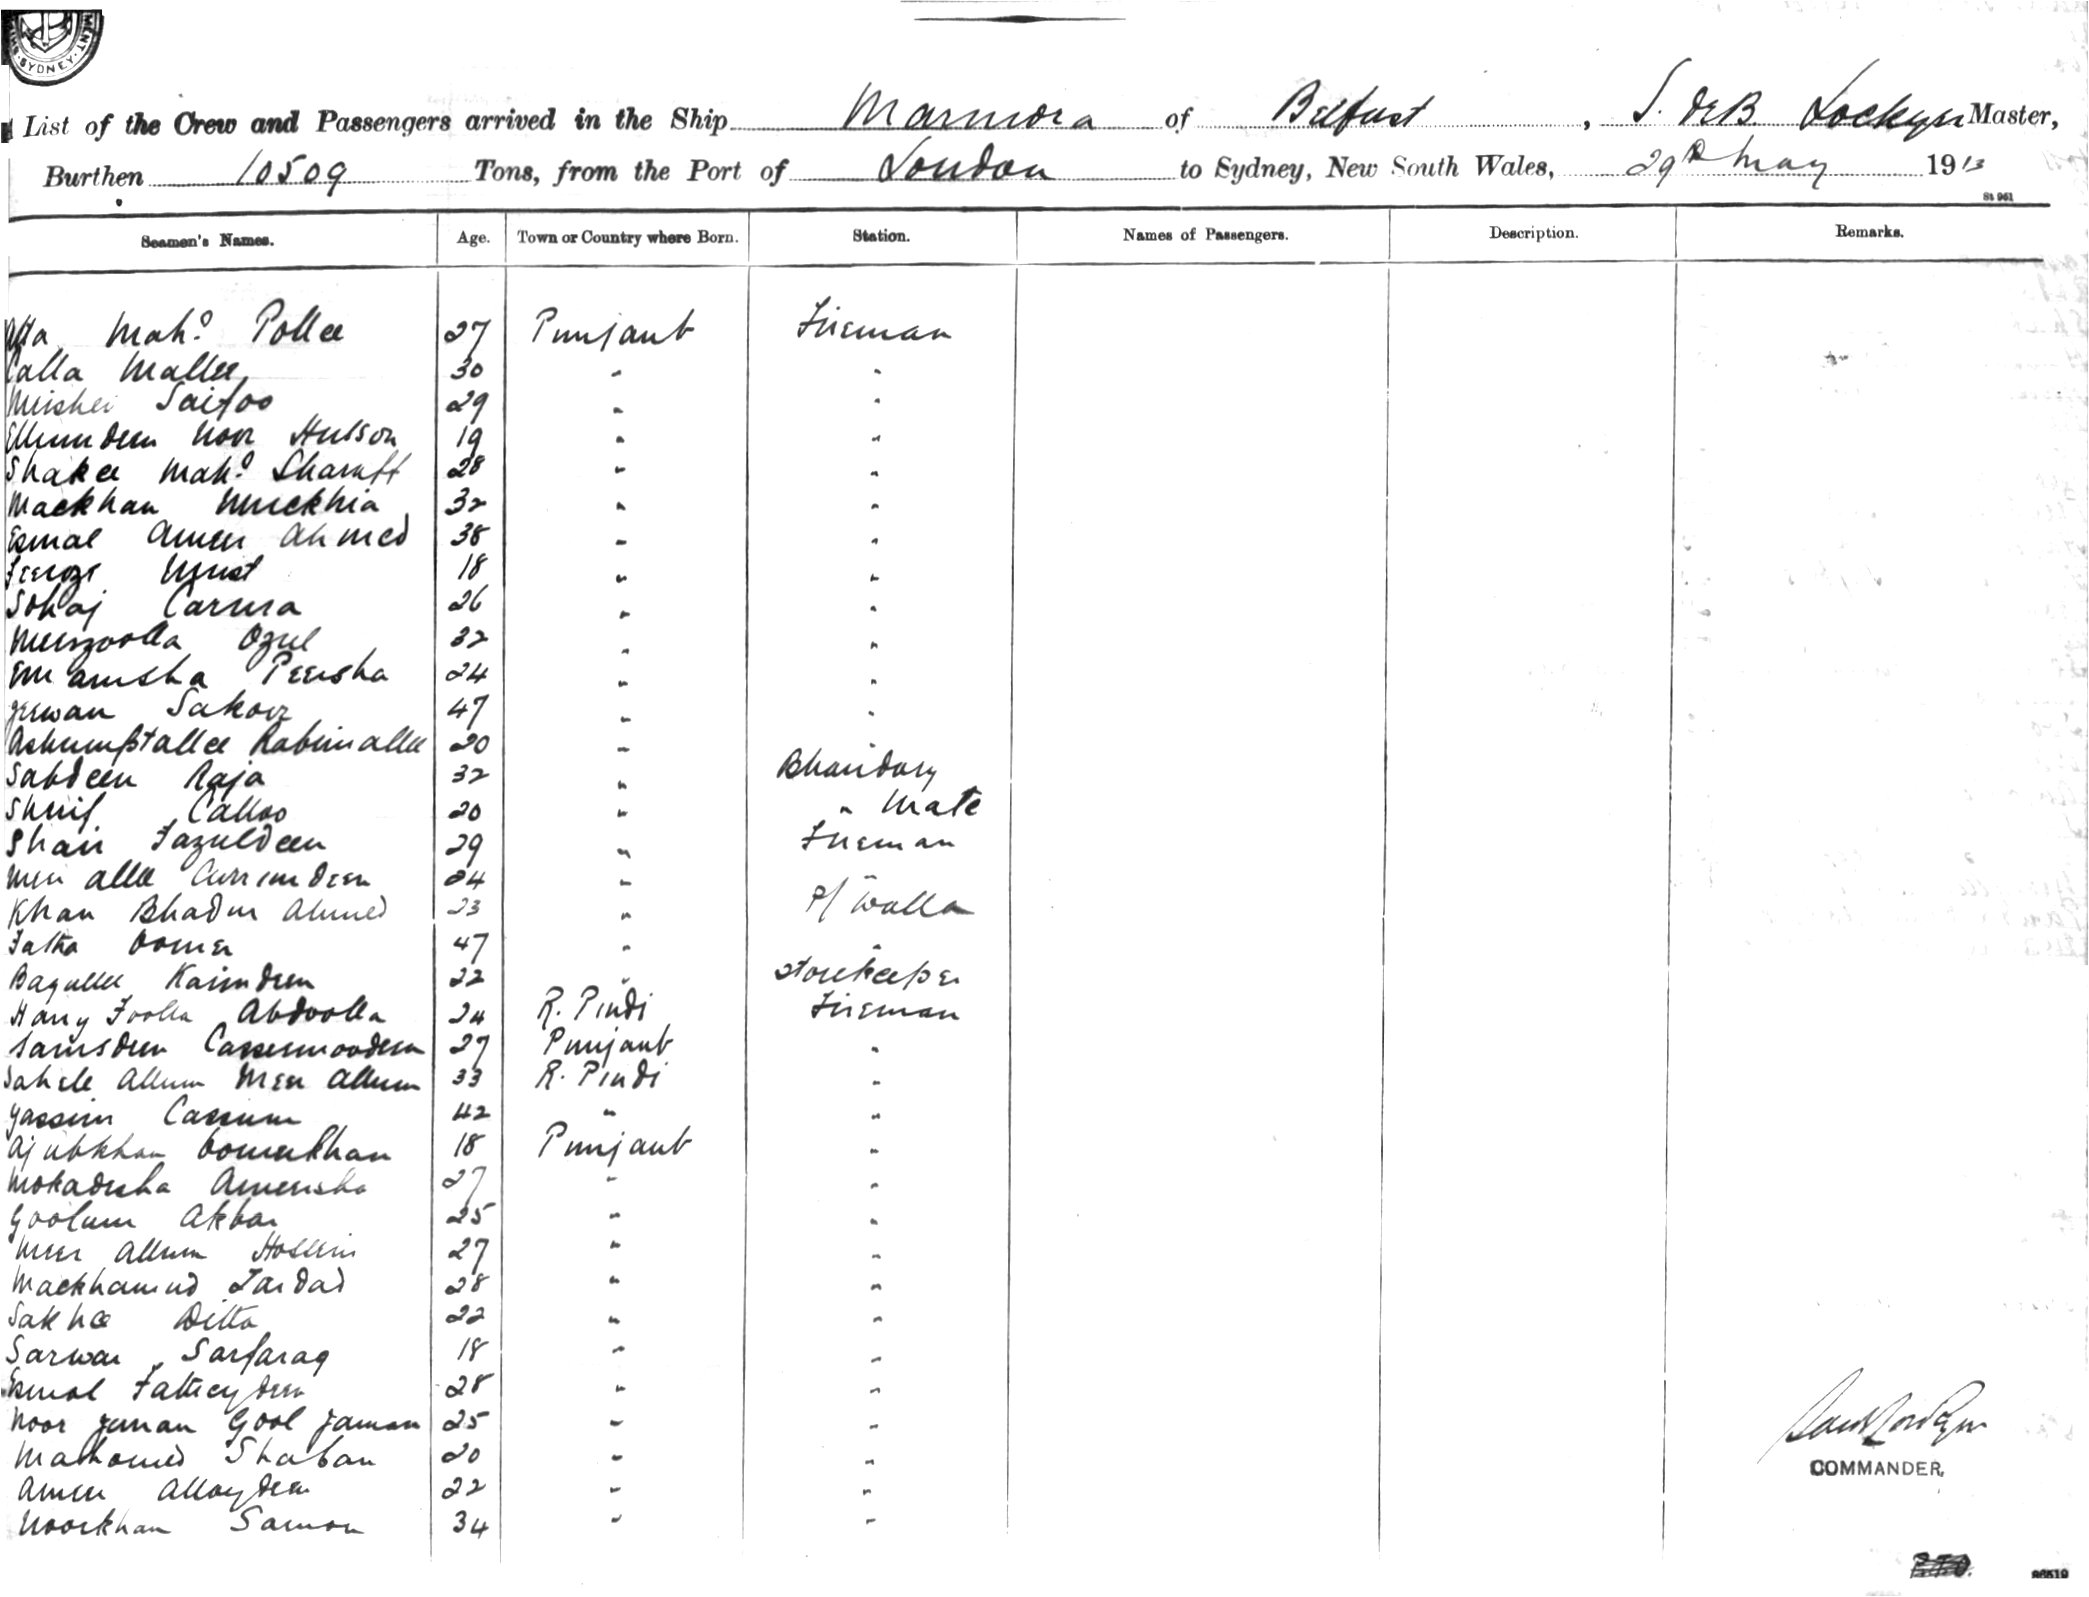 SYDNEY
List of the Crew and Passengers arrived in the Ship Marmora of Belfast, S. de B Lockyer Master,
Burthen 10509 Tons, from the Port of London to Sydney, New South Wales, 29th May 1913
St 961
Seamen's Names. Age. Town or Country where Born. Station. Names of Passengers. Description. Remarks.
Atta Mahd Pollee 27 Punjaub Fireman
Calla Mallee 30 " "
Saifoo 29 " "
Ellumdeen Noor Hulson 19 " "
Shakee Mahd Sharuff 28 " "
Mackhan Muckhia 32 " "
Esmal Ameer Ahmed 38 " "
Feeroze 18 " "
Sohaj Carma 26 " "
Meerzoolla Ozul 32 " "
Emamsha Peersha 24 " "
Jeewan Sakoor 47 " "
Rahimallee 20 " "
Sabdeen Raja 32 " Bhandary
Shrif Calloo 20 " " Mate
Shair Fazuldeen 29 " Fireman
Meer allee Currimdeen 24 " "
Khan Bhadur Ahmed 23 " P/ Walla
Fatta Oomer 47 " "
Bagullee Karimdeen 22 " Storekeeper
Foolla Abdoolla 24 R. Pindi Fireman
Samsdeen Cassermoodeen 27 Punjaub "
Sahele Allum Meer Allum 33 R. Pindi "
Yassim Cassum 42 " "
Ajubkhan Oomerkhan 18 Punjaub "
Mokadusha Ameersha 27 " "
Goolum Akbar 25 " "
Meer Allum Hossein 27 " "
Mackhamud Jardad 28 " "
Sakhee Ditta 22 " "
Sarwar Sarfaraq 18 " "
Esmal Fatteydeen 28 " "
Noor Jeman Gool Jaman 25 " "
Mahomed Shaban 20 " "
Ameer Alloydeen 22 " "
Noorkhan Samon 34 " "
COMMANDER,
P.T.O.